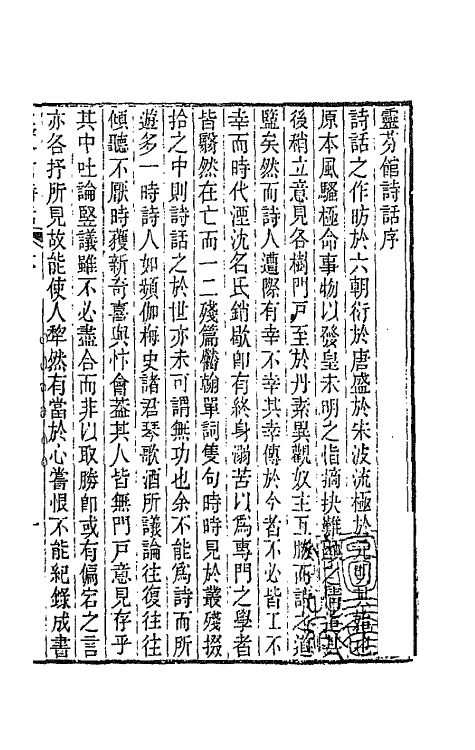 靈芬館詩話序
詩話之作昉於六朝衍於唐盛於宋波流極於元明其
原本風騷極命事物以發皇未明之恉摘抉難
後稍立意見各樹門戶至於丹素異觀奴主互勝而詩之道
盬矣然而詩人遭際有幸不幸其幸傳於今者不必皆工不
幸而時代湮沈名氏銷歇卽有終身溺苦以爲專門之學者
皆翳然在亡而一二殘篇斷翰單詞隻句時時見於叢殘掇
拾之中則詩話之於世亦未可謂無功也余不能爲詩而所
遊多一時詩人如頻伽梅史諸君琴歌酒所議論往復往往
傾聽不厭時獲新奇喜與忭會蓋其人皆無門戶意見存乎
其中吐論竪議雖不必盡合而非以取勝卽或有偏宕之言
亦各抒所見故能使人犂然有當於心嘗恨不能紀錄成書
一